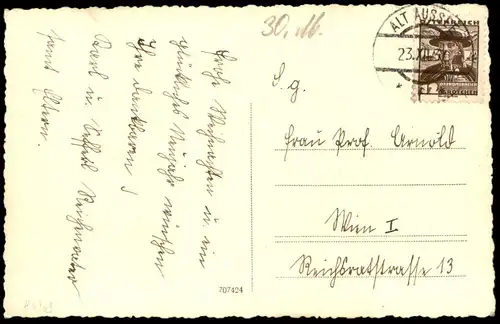 30. 16.
ALT AUSSEE
23.XII.37
ÖSTERREICH
GROSCHEN
S. g.
Frau Prof. Arnold
Wien I
Reichsratstrasse 13
Frohe Weihnachten u. ein
glückliches Neujahr wünschen
Ihre dankbaren
Karl u.
samt Eltern.
707424